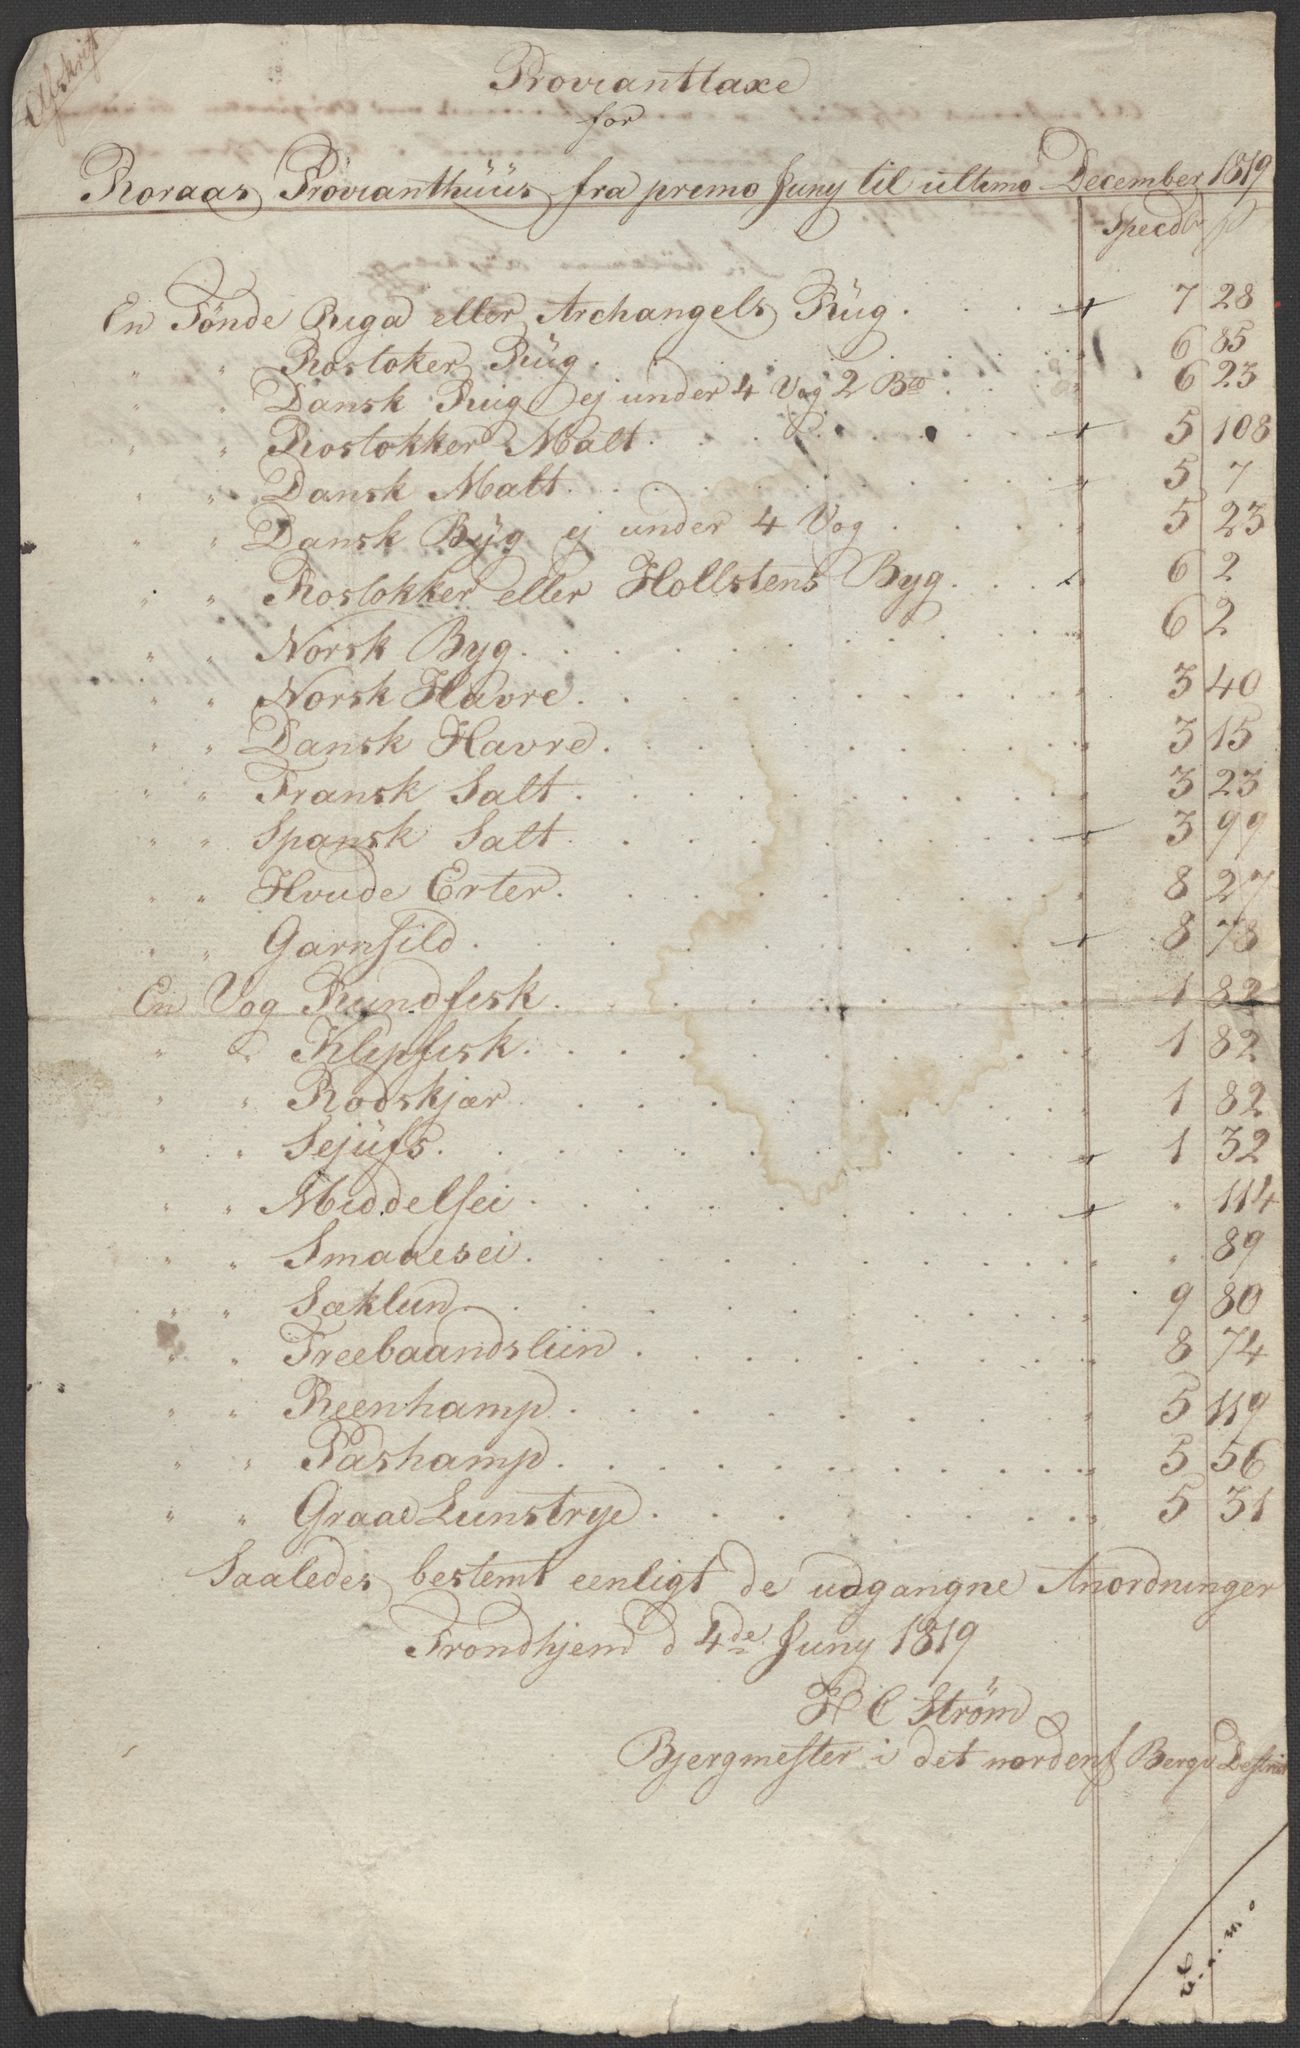 Afskrift
Provianttaxe
for
Roraas Provianthüüs fra premo Juny til ultimo December 1819
Specdlr ß
En Tönde Riga eller Archangels Rüg . . . 7 28
" " Rostoker Rüg . . . 6 85
" " Dansk Rug ej under 4 Vog 2 B . . . 6 23
" " Rostokker Malt . . . 5 108
" " Dansk Malt . . . 5 7
" " Dansk Byg ej under 4 Vog . . . 5 23
" " Rostokker eller Hollstens Byg . . . 6 2
" " Norsk Byg . . . 6 2
" " Norsk Havre . . . 3 40
" " Dansk Havre . . . 3 15
" " Fransk Salt . . . 3 23
" " Spansk Salt . . . 3 99
" " Hvide Erter . . . 8 27
" " Garnsild . . . 8 78
En Vog Rundfisk . . . 1 82
" " Klipfisk . . . 1 82
" " Rodskjær . . . 1 82
" " Sejüfs . . . 1 32
" " Middelsei . . . " 114
" " Smaaesei . . . " 89
" " Sæklun . . . 9 80
" " Treebaandsliin . . . 8 74
" " Reenhamp . . . 5 119
" " Pashamp . . . 5 56
" " Graae Lunstrye . . . 5 31
Saaledes bestemt eenligt de udgangne Anordninger
Trondhjem d 4de Juny 1819
H C Strøm
Bjergmester i det nordenf Bergv Destrict